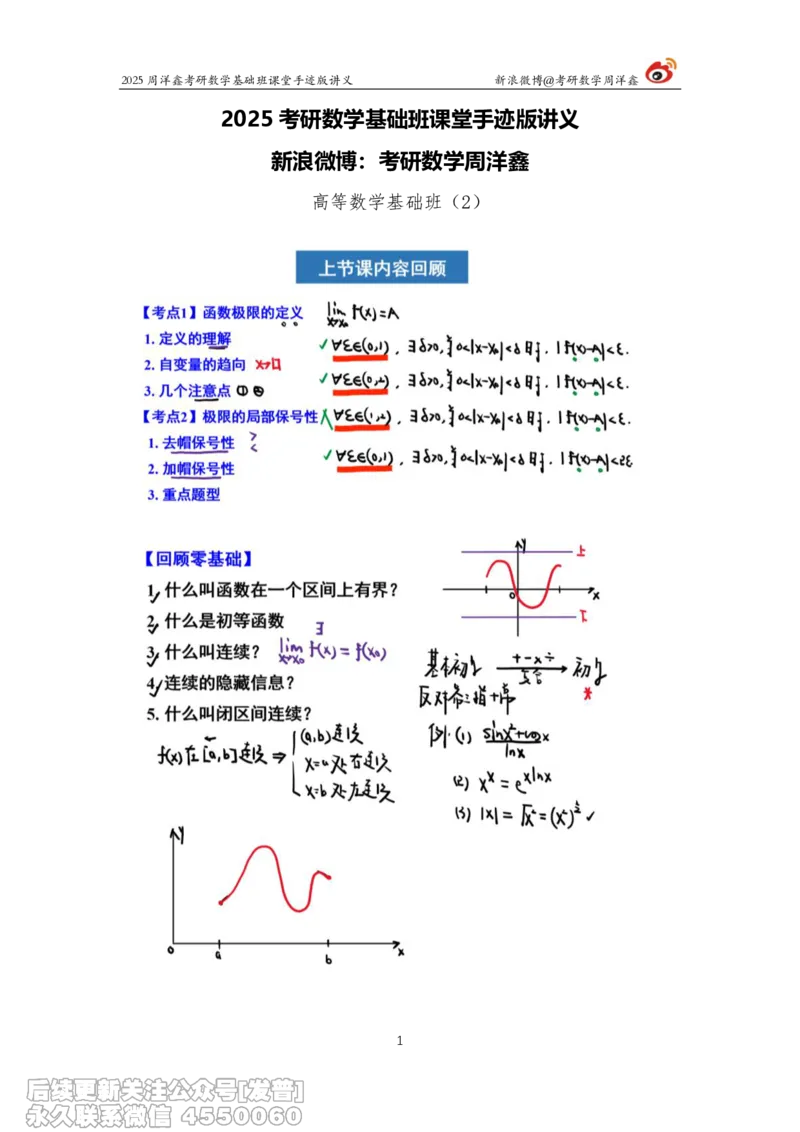 2025 周洋鑫考研数学基础班课堂手迹版讲义 新浪微博@考研数学周洋鑫
2025 考研数学基础班课堂手迹版讲义
新浪微博：考研数学周洋鑫
高等数学基础班（2）
上节课内容回顾
【考点1】函数极限的定义 lim x→x₀ f(x)=A
1. 定义的理解 ✓ ∀ε∈(0,1)，∃δ>0，当 0<|x-x₀|<δ 时，|f(x)-A|<ε.
2. 自变量的趋向 x→□
✓ ∀ε∈(0,2)，∃δ>0，当 0<|x-x₀|<δ 时，|f(x)-A|<ε.
3. 几个注意点 ①
【考点2】极限的局部保号性 ∀ε∈(1,2)，∃δ>0，当 0<|x-x₀|<δ 时，|f(x)-A|<ε.
1. 去帽保号性 > <
✓ ∀ε∈(0,1)，∃δ>0，当 0<|x-x₀|<δ 时，|f(x)-A|<2ε
2. 加帽保号性
3. 重点题型
【回顾零基础】
1. 什么叫函数在一个区间上有界？
2. 什么是初等函数
∃
3. 什么叫连续？ lim x→x₀ f(x) = f(x₀)
4. 连续的隐藏信息？
5. 什么叫闭区间连续？
f(x)在[a,b]连续 ⇒
(a,b)连续
x=a处右连续
x=b处左连续
y
上
o
x
下
基本初等 + - × ÷ 复合 → 初等
*
反对幂三指+常
例. (1) (sin x²+cos x)/ln x
(2) xˣ = e^{x ln x}
(3) |x| = √x² = (x²)^{1/2} ✓
y
o
a
b
x
1
后续更新关注公众号[发普]
永久联系微信 4550060